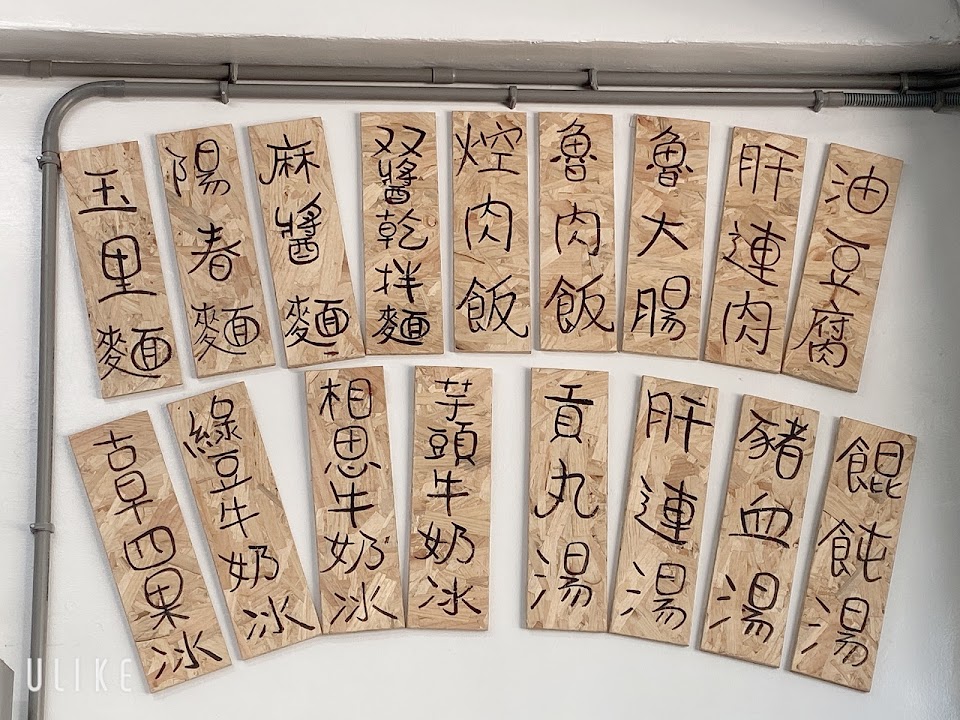 玉里麵
陽春麵
麻醬麵
双醬乾拌麵
焢肉飯
魯肉飯
魯大腸
肝連肉
油豆腐
古早四果冰
綠豆牛奶冰
相思牛奶冰
芋頭牛奶冰
貢丸湯
肝連湯
豬血湯
餛飩湯
ULIKE